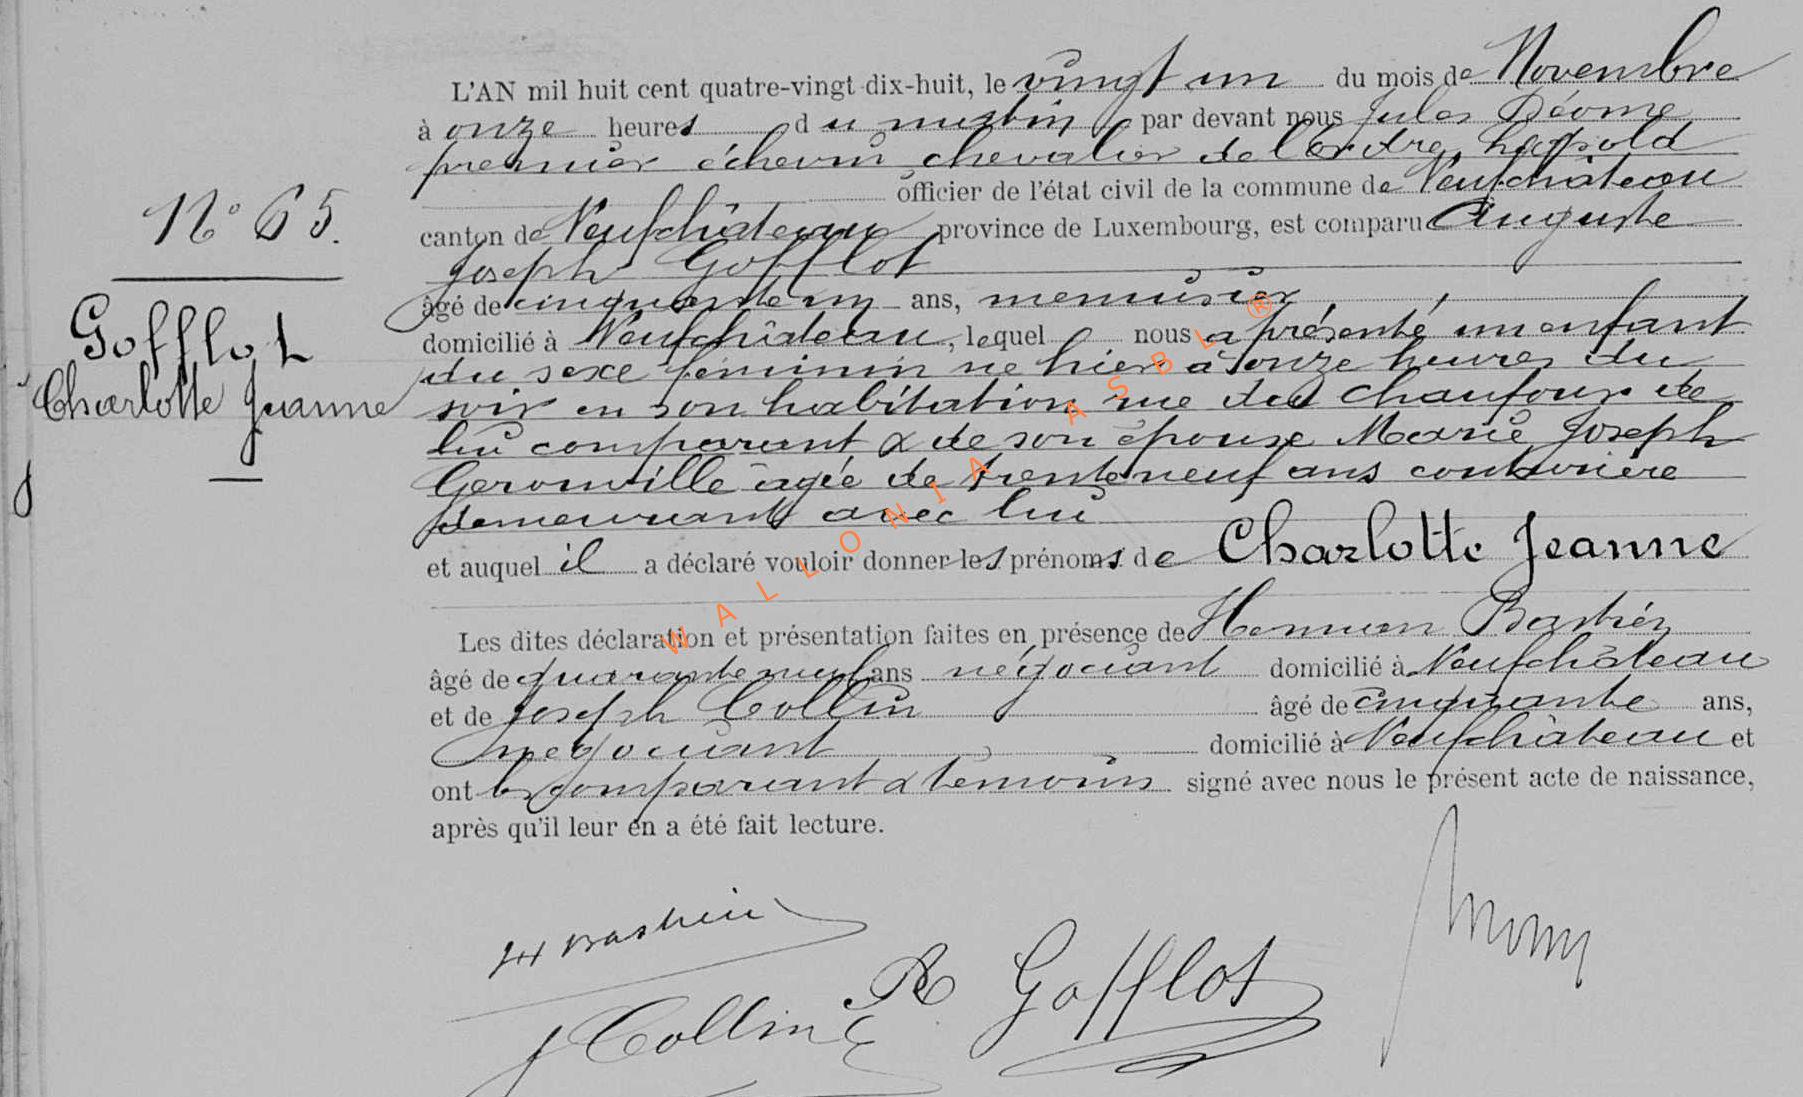 N° 65.
Gofflot
Charlotte Jeanne
L'AN mil huit cent quatre-vingt dix-huit, le vingt un du mois de Novembre
à onze heures du matin, par devant nous Jules Déome
premier échevin chevalier de l'Ordre Léopold
officier de l'état civil de la commune de Neufchâteau
canton de Neufchâteau province de Luxembourg, est comparu Auguste
Joseph Gofflot
âgé de cinquante un ans, menuisier
domicilié à Neufchâteau, lequel nous a présenté un enfant
du sexe féminin né hier à onze heures du
soir en son habitation rue du Chaufour de
lui comparant & de son épouse Marie Joseph
Geronville âgée de trente neuf ans couturière
demeurant avec lui
et auquel il a déclaré vouloir donner les prénoms de Charlotte Jeanne
Les dites déclaration et présentation faites en présence de Herman Bastien
âgé de quarante neuf ans négociant domicilié à Neufchâteau
et de Joseph Collin âgé de cinquante ans,
négociant domicilié à Neufchâteau et
ont les comparant & témoins signé avec nous le présent acte de naissance,
après qu'il leur en a été fait lecture.
H Bastien
Gofflot
J Collin
WALLONIA ASBL ®